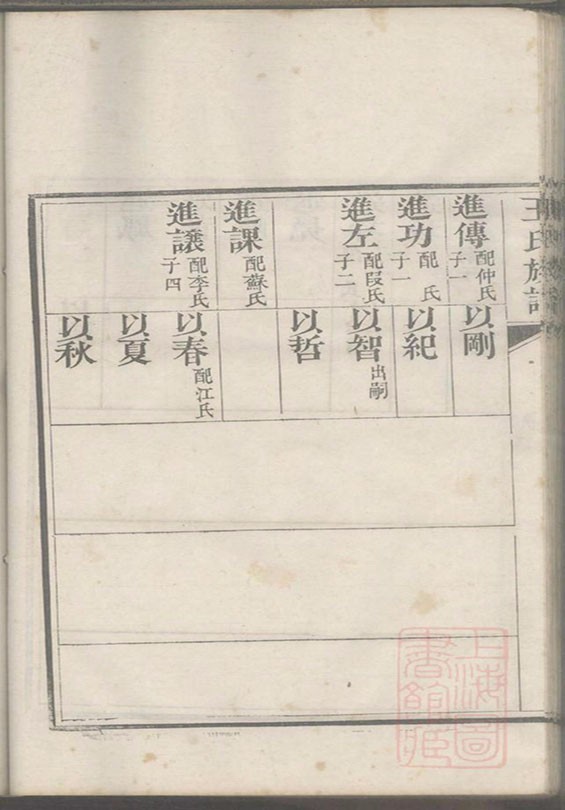 王氏族譜
進傳 配仲氏 子一
進功 配　氏 子一
進左 配段氏 子二
進課 配蘇氏
進讓 配李氏 子四
以剛
以紀
以智 出嗣
以哲
以春 配江氏
以夏
以秋
上海圖書館藏